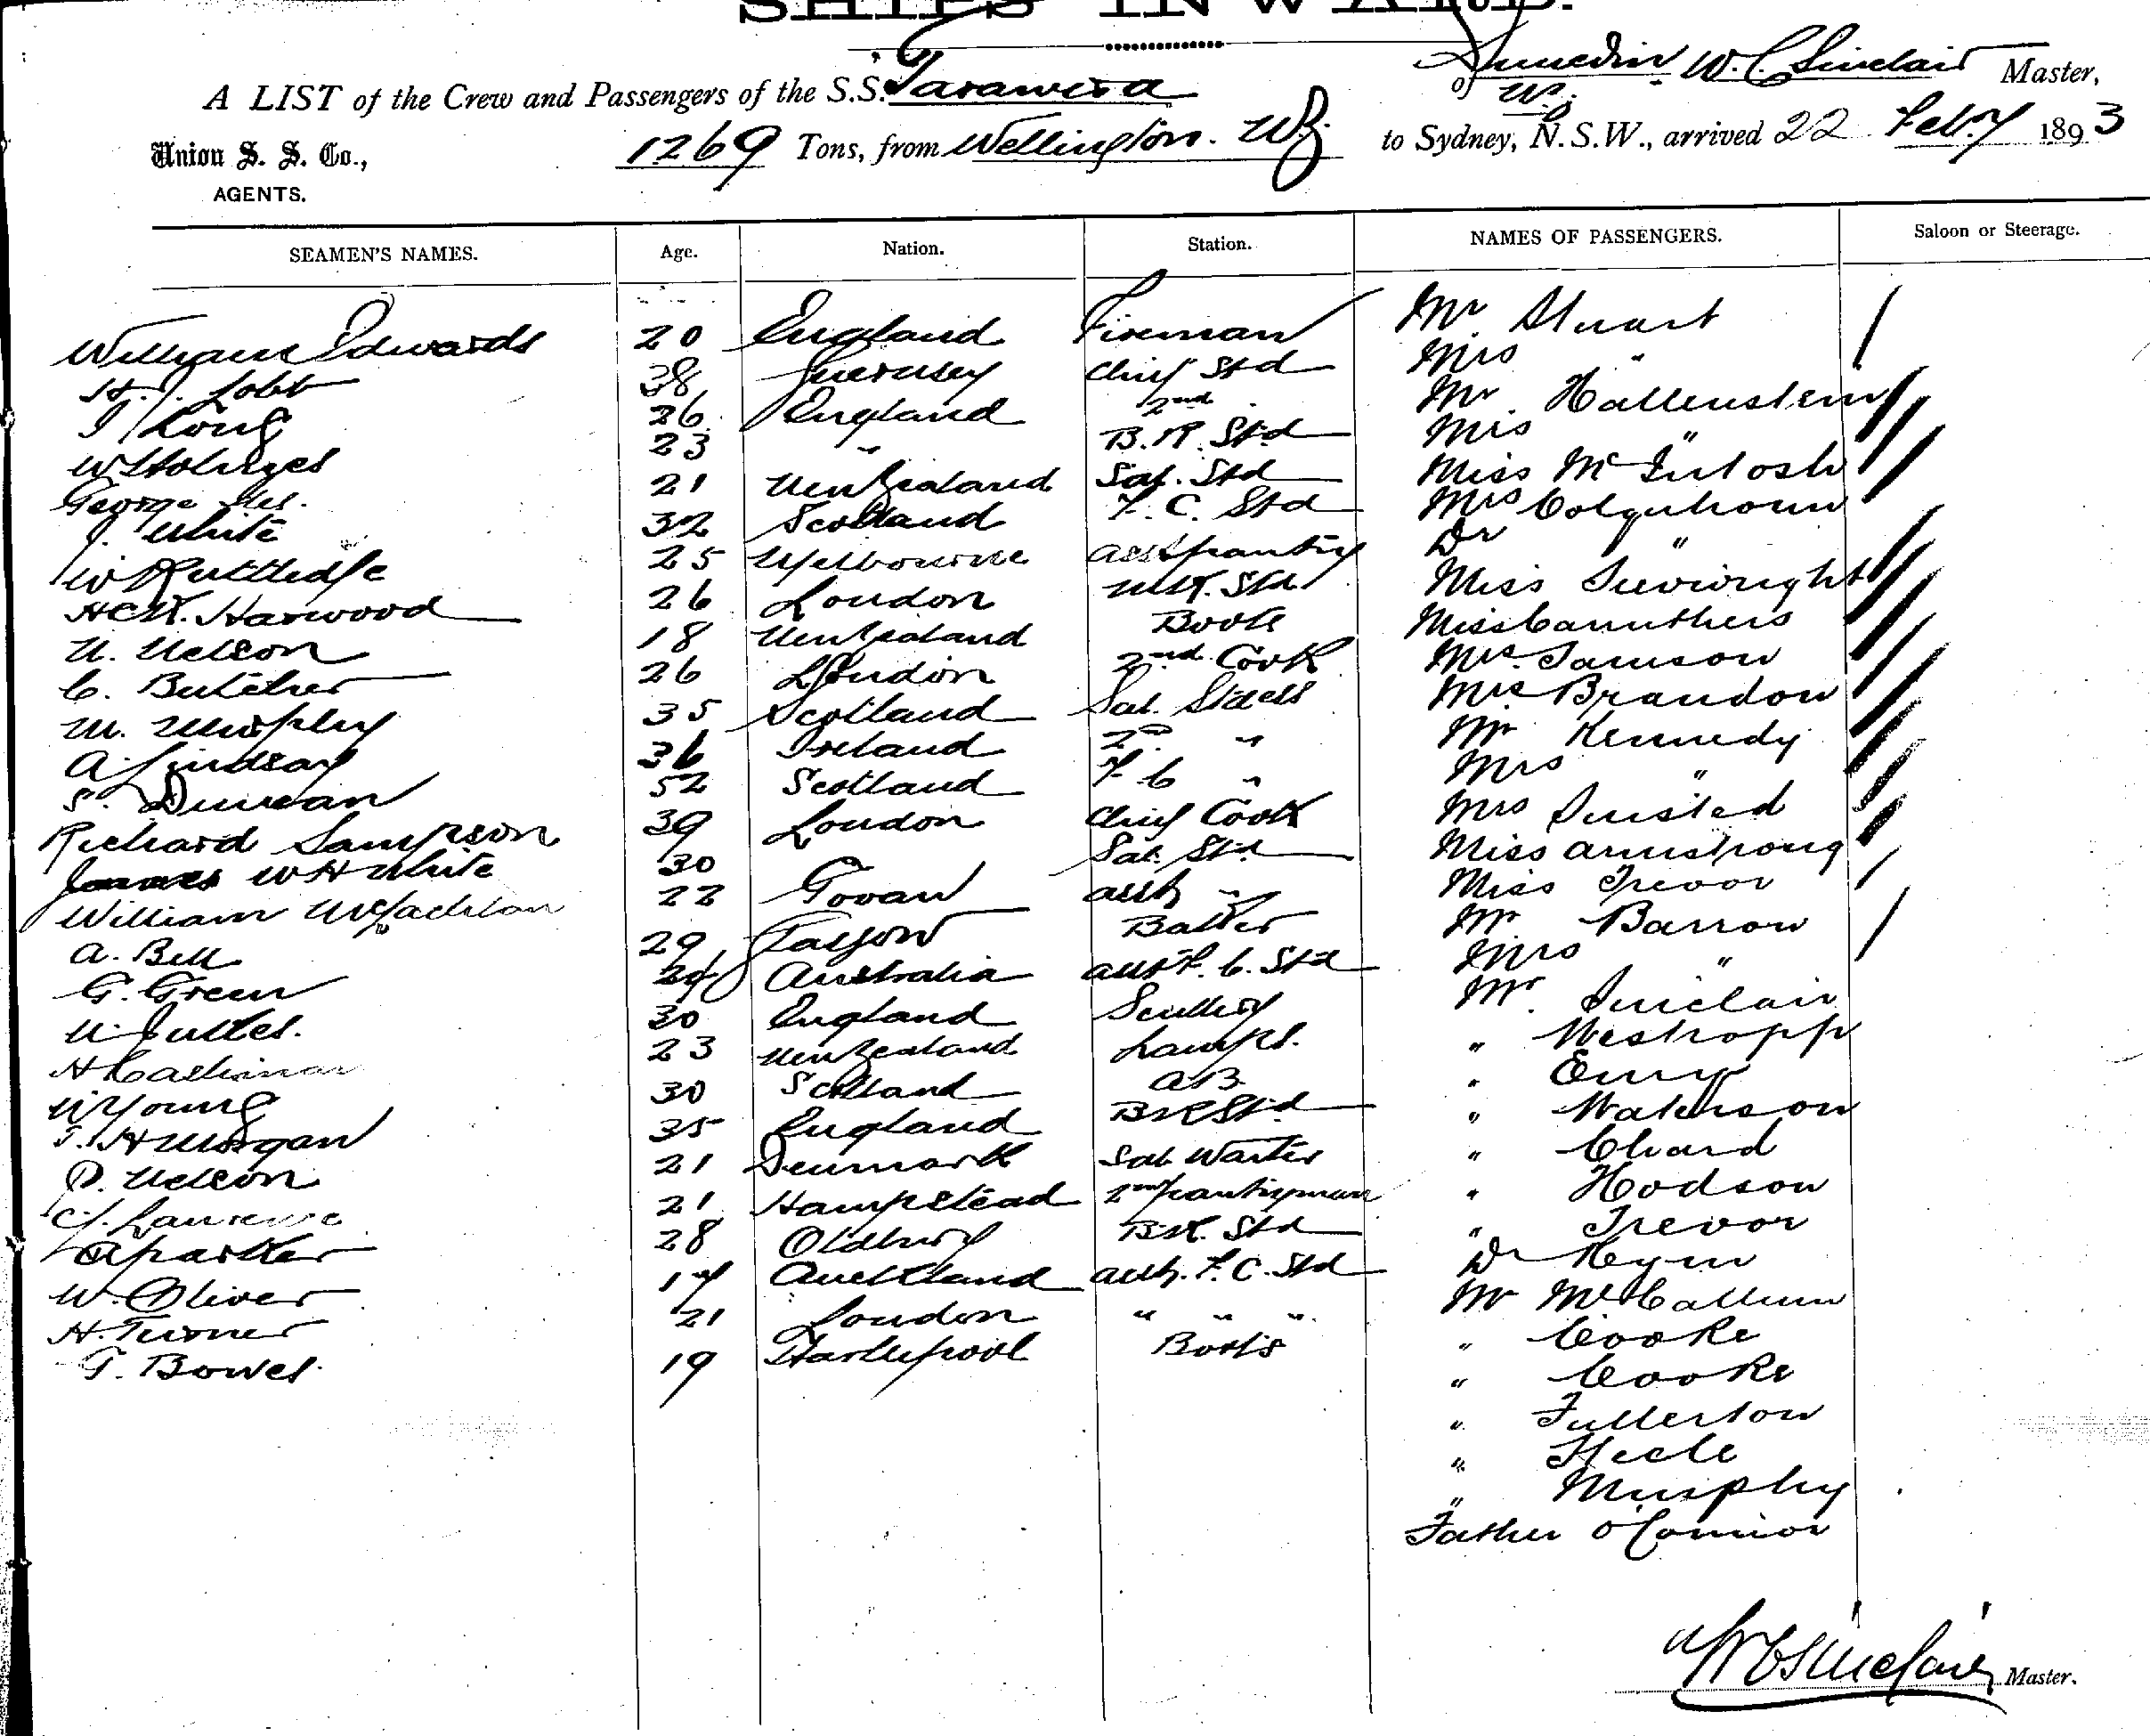 SHIPS INWARD.
A LIST of the Crew and Passengers of the S.S. Tarawera of Dunedin W. C. Sinclair Master,
Union S. S. Co., 1269 Tons, from Wellington. to Sydney, N.S.W., arrived 22 Feby 1893
AGENTS.
SEAMEN'S NAMES. Age. Nation. Station. NAMES OF PASSENGERS. Saloon or Steerage.
William Edwards 20 England Fireman Mr Stuart
H. J. Lobb 38 Guernsey Chief Std Mrs "
J Long 26 England 2nd Mr Hallenstein
W Holmes 23 " B. R. Std Mrs "
George 21 New Zealand Sal. Std Miss McIntosh
J. White 32 Scotland F. C. Std Mrs Colquhoun
W Ruttledge 25 Melbourne asst pantry Dr "
H C W. Harwood 26 London Std Miss Sievwright
N. Nelson 18 New Zealand Boots Miss Carruthers
C. Butcher 26 London 2nd Cook Mrs. Samson
M. Murphy 35 Scotland Sal. Stdess Mrs Brandon
A. Lindsay 36 Ireland 2nd " Mr Kennedy
S. Duncan 52 Scotland F C " Mrs "
Richard Sampson 39 London Chief Cook Mrs
James W H White 30 Sal. Std Miss Armstrong
William McLachlan 22 Govan asst " Miss Trevor
A. Bell 29 Glasgow Baker Mr Barrow
G. Green 24 Australia asst F. C. Std Mrs "
30 England Scullery Mr. Sinclair
H 23 New Zealand Lamps. " Westropp
W Young 30 Scotland AB "
T. H Morgan 35 England B R Std " Waterson
P. Nelson 21 Denmark Sal Waiter " Chard
C. J. Laurence 21 Hampstead 2nd pantryman " Hodson
A Parker 28 Oldbury B R. Std " Trevor
W. Oliver 17 Auckland asst. F. C. Std Dr
H. Turner 21 London " " " Mr McCallum
T. Bowes. 19 Hartlepool Boots " Cooke
" Cooke
" Fullerton
" Steele
" Murphy
Father O'Connor
W C Sinclair Master.